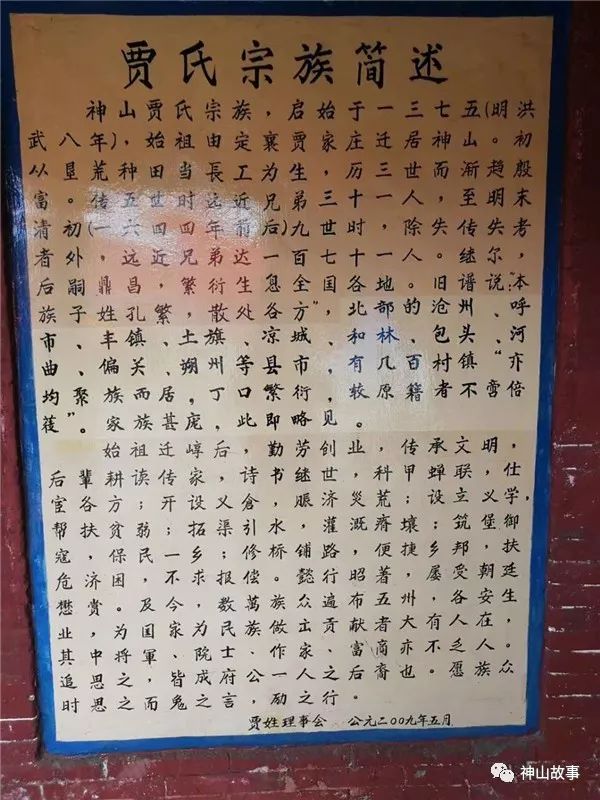 贾氏宗族简述
神山贾氏宗族，启始于一三七五(明洪
武八年)，始祖由定襄贾家庄迁居神山。初
从垦荒种田当長工为生，历三世而渐趋殷
富。传五世时远近兄弟三十一人，至明末
清初(一六四四年前后)九世时除失传失考
者外，远近兄弟达一百七十人。继尔，
后嗣鼎昌，繁衍生息全国各地。旧谱说："本
族子姓孔繁，散处各方"，北部的沧州、呼
市、丰镇、土旗、凉城和林、包头、河
曲、偏关、朔州等县市有几百村镇，"亦
均聚族而居，丁口繁衍较原籍者不啻倍
蓰"。家族甚庞，此即略见。
始祖迁崞后，勤劳创业，传承文明，
后辈耕读传家，诗书继世，科甲蝉联，仕
宦各方；开设义倉，赈济災荒；设立义学，
帮扶贫弱；拓渠引水，灌溉瘠壤；筑堡御
寇，保民一乡；修桥铺路，便捷乡邦，扶
危济困，不求报偿。懿行昭著，屡受朝廷
懋赏。及今，数萬族众遍布五州，各安生
业，为国家为民族做出贡献者大有人在，
其中将軍、院士、作家、富商亦不乏人。
追思之，皆成府公一人之后裔也。愿族众
时思之而鬼之言，励之行。
贾姓理事会 公元二00九年五月
神山故事